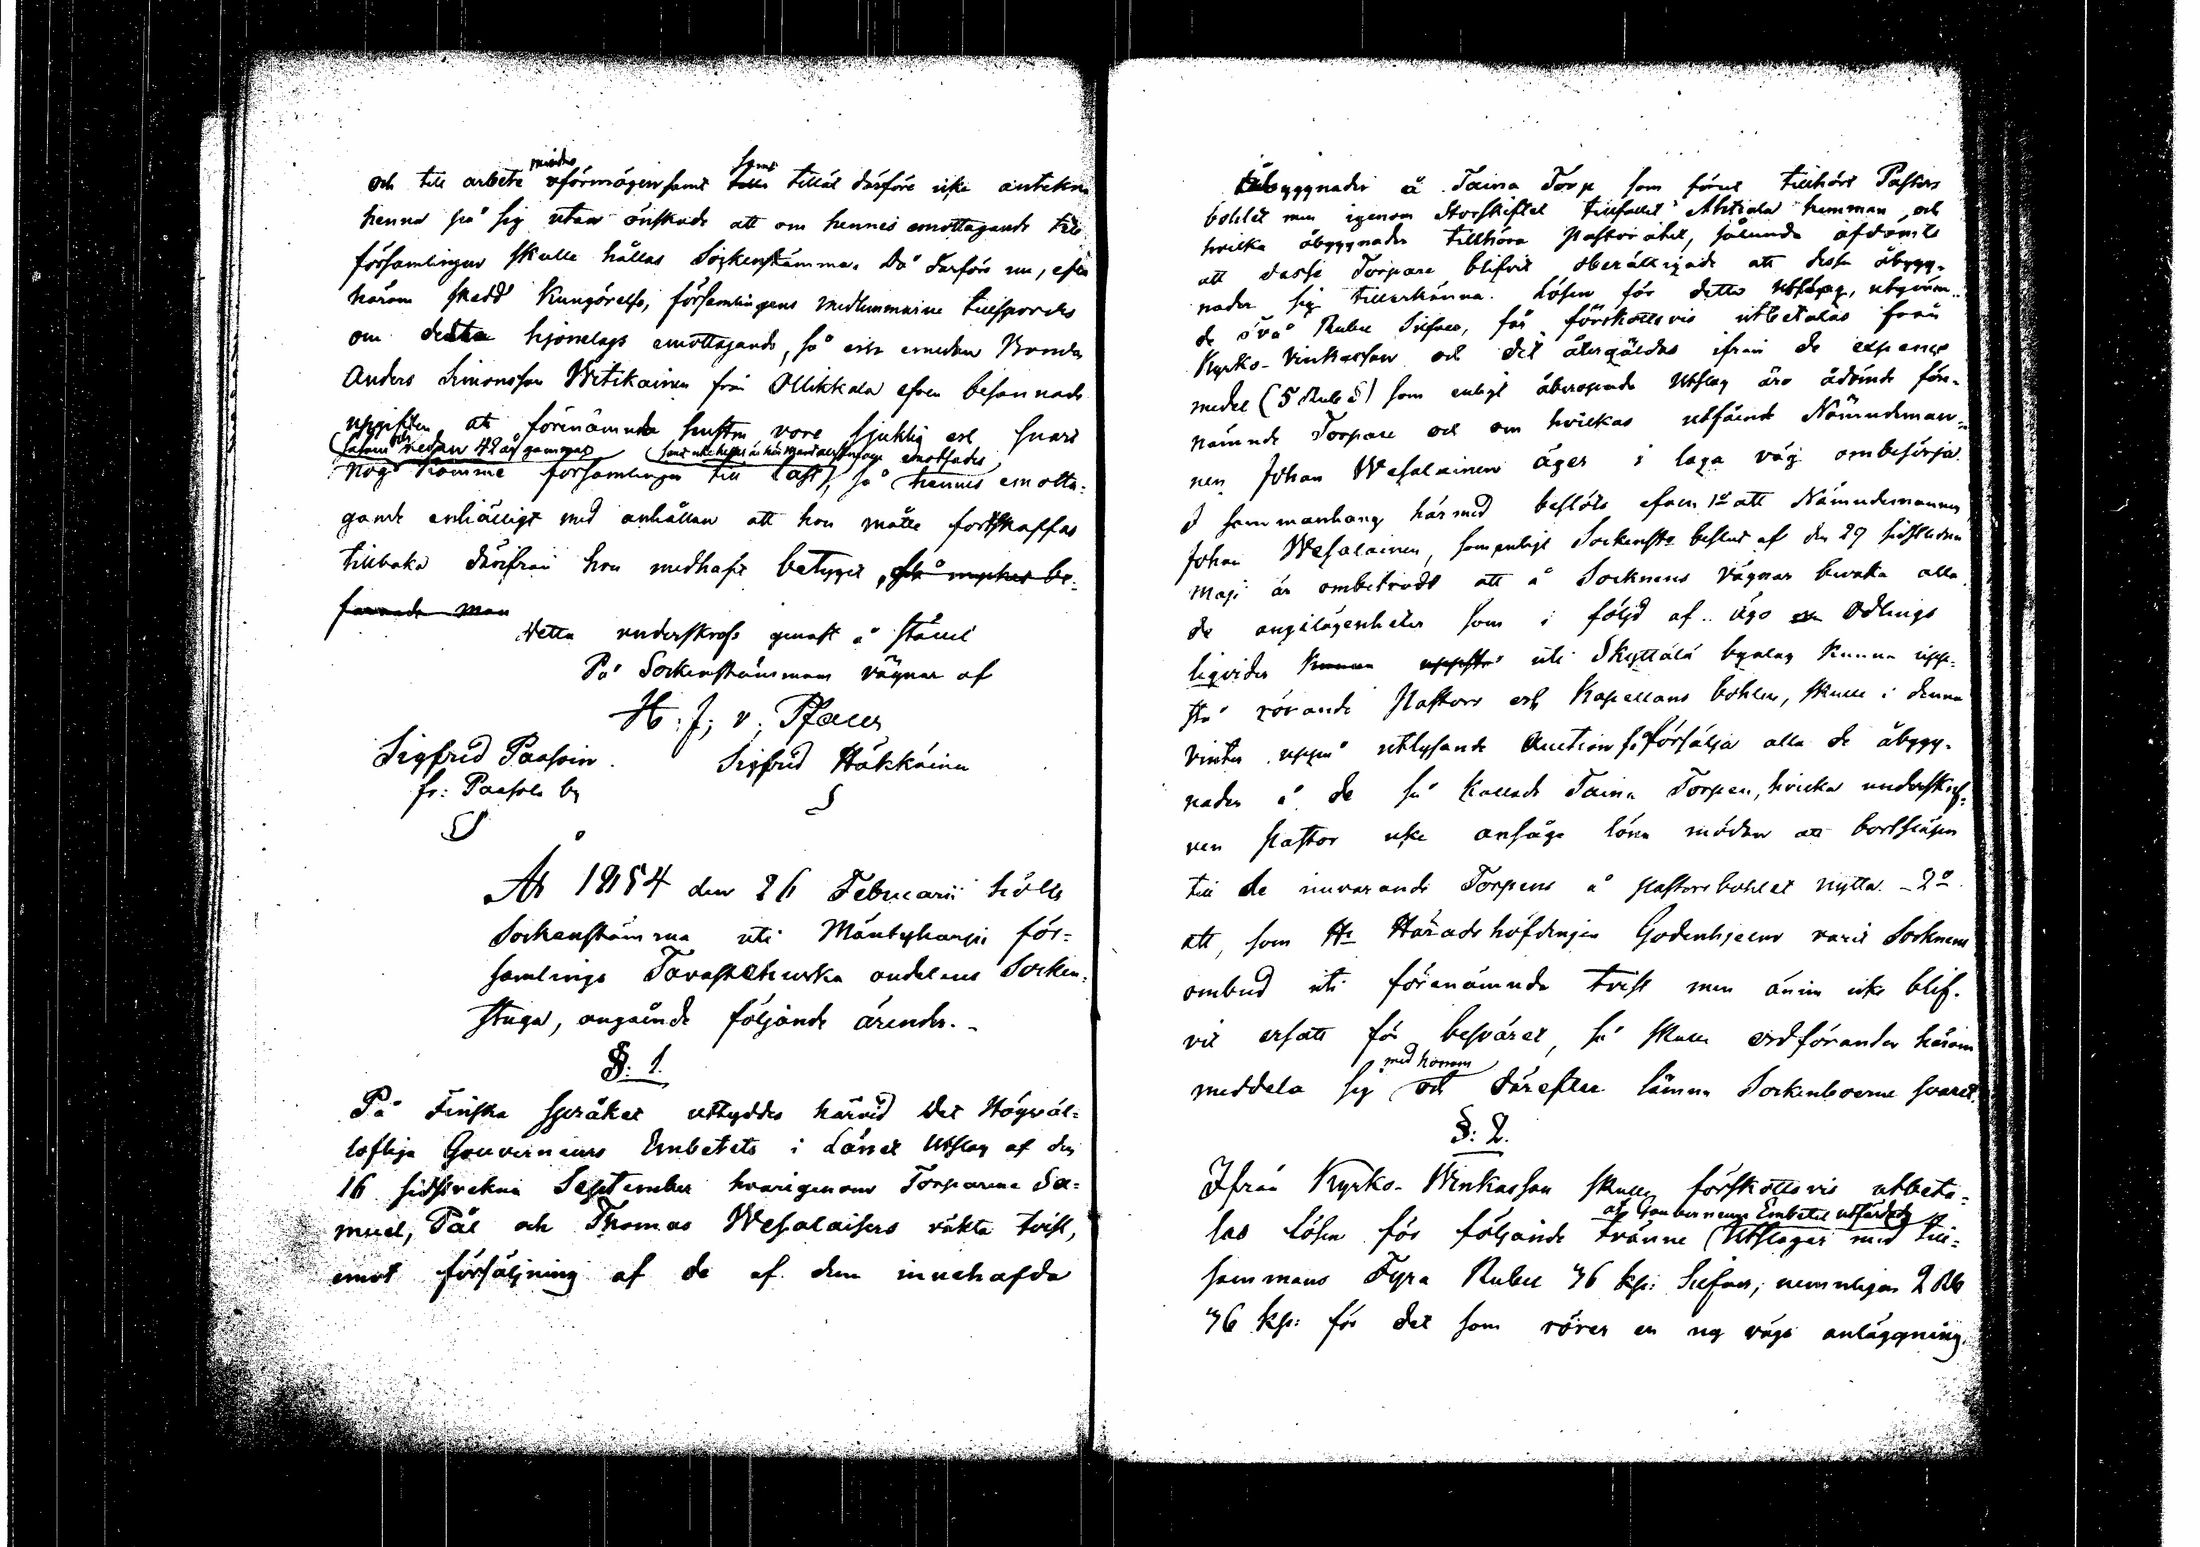 och till arbete mindre oförmögen samt tillät därföre icke anteckna
henne på sig utan önskade att om hennes emottagande till
församlingen skulle hållas Sockenstämma. Då därföre nu, efter
härom skedd Kungörelse, församlingens medlemmarne tillspordes
om detta hjonelags emottagande, så emedan Bonden
Anders Simonsson Witikainen från Ollikkala efven besannade
uppgiften att förenämnda hustru vore sjuklig och snart
redan 42 år gammal emotsades
nog komme församlingen till last, så hennes emotta-
gande enhälligt med anhållan att hon måtte fortskaffas
tillbaka därifrån hon medhaft betyget, så mycket be-
farade man
Detta underskrefs genast å stället
På Sockenstämmans vägnar af
H. J. v. Pfaler
Sigfrid Paasoin. Sigfrid Häkkäinen
fr: Paasola by
§ §
År 1854 den 26 Februarii hölls
Sockenstämma uti Mäntyharju för-
samlings Tavastehuska andelens Socken-
stuga, angående följande ärender. -
§: 1.
På Finska språket uttyddes härvid Det Högväl-
lofliga Gouverneurs Embetets i Länet Utslag af den
16 sidstvekne September hvarigenom Torparene Sa-
muel, Pål och Thomas Wesalaisers väkta tvist,
emot försäljning af de af dem innehafda
Åbyggnader å Taina Torp som förut tillhört Pastors
bohlet men igenom Storskiftet tillfallet Ahtiala hemman och
hvilka åbyggnader tillhöra Pastoratet, sålunda afdömts
att dessa Torpare blifvit oberättigade att dessa åbygg-
nader sig tillerkänna. Lösen för detta Utslag, utgöran-
de två Rubel Silfver, får förskottsvis utbetalas från
Kyrko-Vinkassan och det återgäldas ifrån de expence
medel (5 Rub S) som enligt åberopade Utslag äro ådömde för-
nämnde Torpare och om hvilkas utfående Nämndeman-
nen Johan Wesalainen äger i laga väg ombesörja.
I sammanhang härmed beslöts efven 1o att Nämndemannen
Johan Wesalainen, som enligt Sockenste beslut af den 29 sidstleden
Maji är ombetrodt att å Socknens vägnar bevaka alla
de angelägenheter som i följd af ägo Odlings
liqvider Kunna uppstå uti Skyttälä byalag Kunna upp-
stå rörande Pastors och Kapellans bohlen, skulle i denna
Vinter uppå utlysande Auction försälja alla de åbygg-
nader å de så Kallade Taina Torpen, hvilka underskrif-
ven Pastor icke ansåge löna mödan att bortflyttas
till de nuvarande Torpens å Pastorsbohlet nytta. - 2o.
att, som Hr Häradshöfdingen Godenhjelm varit Socknens
ombud uti förenämnda tvist men ännu icke blif-
vit ersatt för besväret, så skulle ordföranden härom
meddela sig med honom och därefter lämna Sockenboerne svaret.
§: 2.
Ifrån Kyrko-Winkassan skulle förskottsvis utbeta-
las lösen för följande tvänne af Gouverneurs Embetet utfärdade Utslager med till-
sammans Fyra Rubel 46 kp: Silfver, nemnligen 2 Rub
46 kp: för det som rörer en ny vägs anläggning,